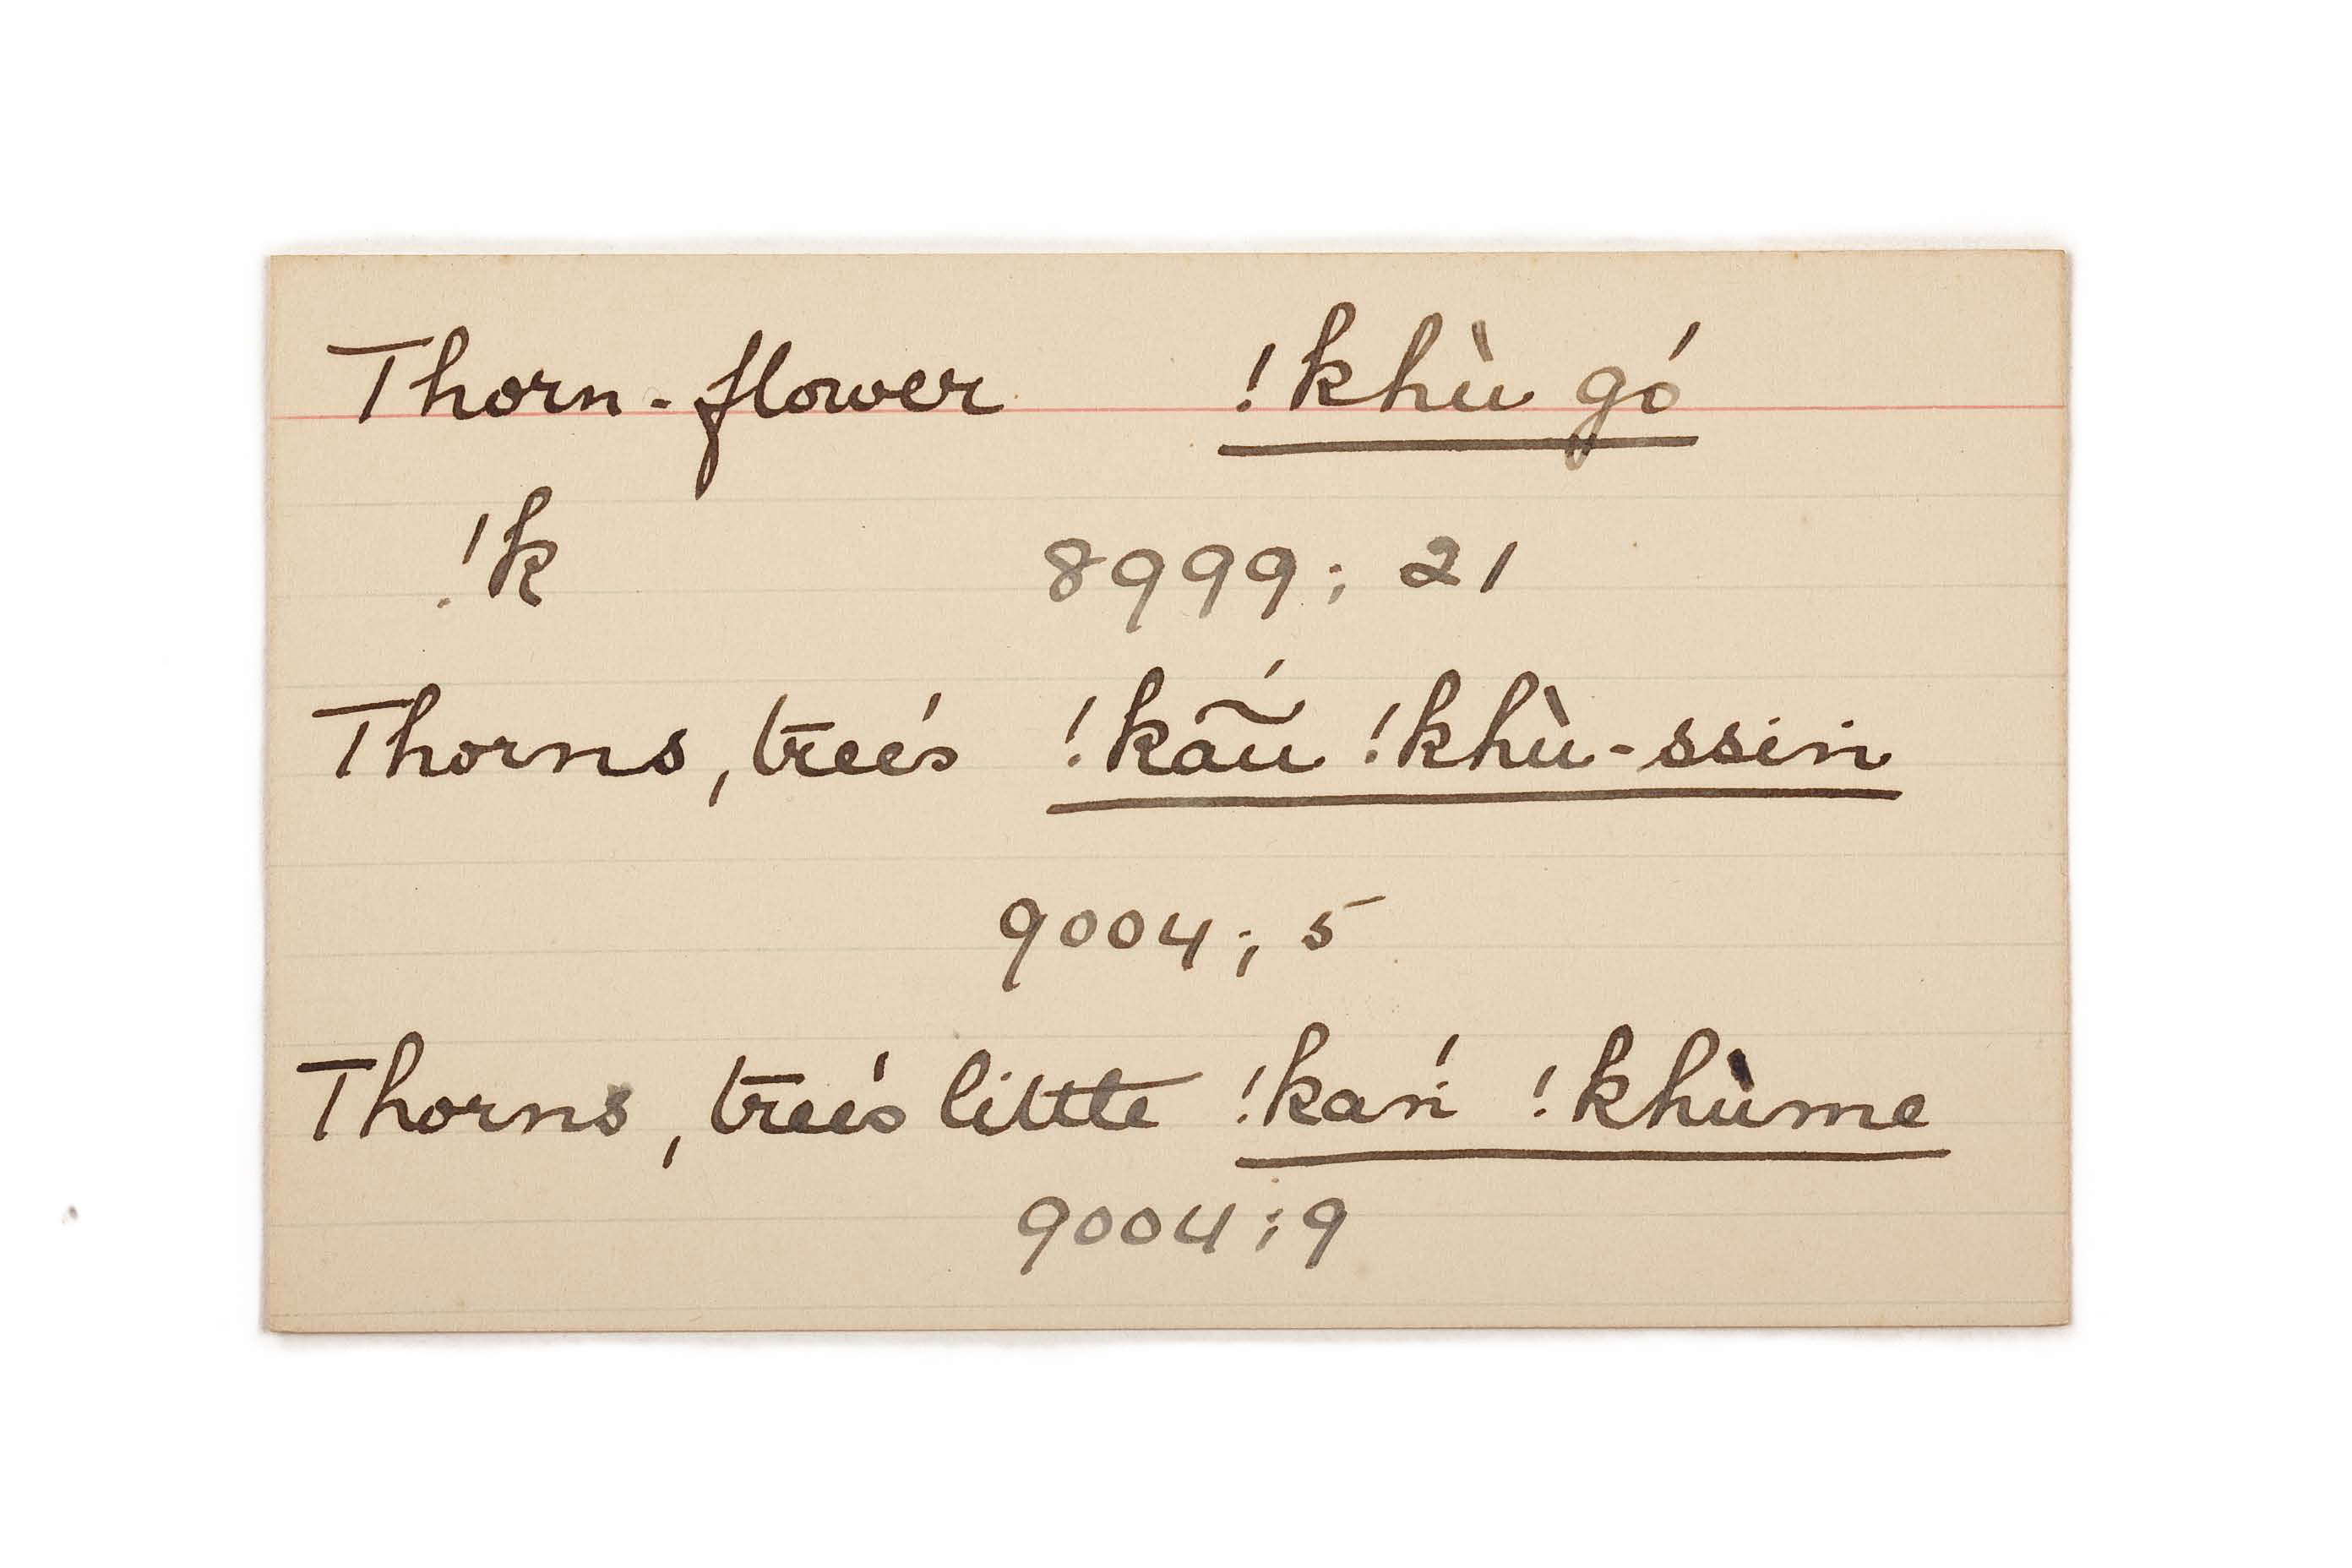 Thorn-flower !khù gó
!k 8999; 21
Thorns, tree's !kã́ũ !khù-ssin
9004; 5
Thorns, tree's little !kań !khùme
9004; 9